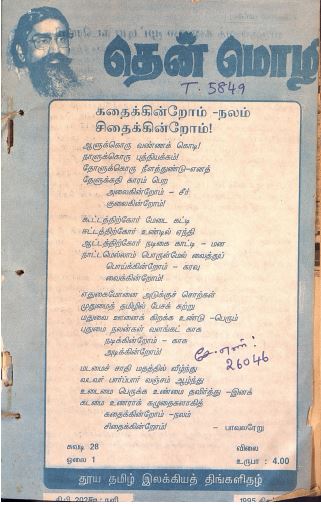 தென் மொழி
T. 5849
கதைக்கின்றோம் -நலம்
சிதைக்கின்றோம்!
ஆளுக்கொரு வண்ணக் கொடி!
நாளுக்கொரு புத்தியக்கம்!
தோளுக்கொரு நீளத்துண்டு-எனத்
தேளுக்கதி காரம் பெற
அலைகின்றோம் - சீர்
குலைகின்றோம்!
கூட்டத்திற்கோர் மேடை கட்டி
ஈட்டத்திற்கோர் உண்டில் ஏந்தி
ஆட்டத்திற்கோர் நடிகை காட்டி - மன
நாட்டமெல்லாம் பொருள்மேல் வைத்துப்
பொய்க்கின்றோம் - கரவு
வைக்கின்றோம்!
எதுகைமோனை அடுக்குச் சொற்கள்
முதுமைத் தமிழில் பேசக் கற்று
மதுவை ஊனைக் கிறக்க உண்டு -பெரும்
புதுமை நலன்கள் வளங்கட் காக
நடிக்கின்றோம் - காசு
அடிக்கின்றோம்!
26046
மடமைச் சாதி மதத்தில் வீழ்ந்து
வடவர் பார்ப்பார் வஞ்சம் ஆழ்ந்து
உடைமை பெருக்க உண்மை தவிர்த்து -இனக்
கடமை உணராக் கழுதைகளாகித்
கதைக்கின்றோம் -நலம்
சிதைக்கின்றோம்! - பாவலரேறு
சுவடி 28 விலை
ஓலை 1 உருபா : 4.00
தூய தமிழ் இலக்கியத் திங்களிதழ்